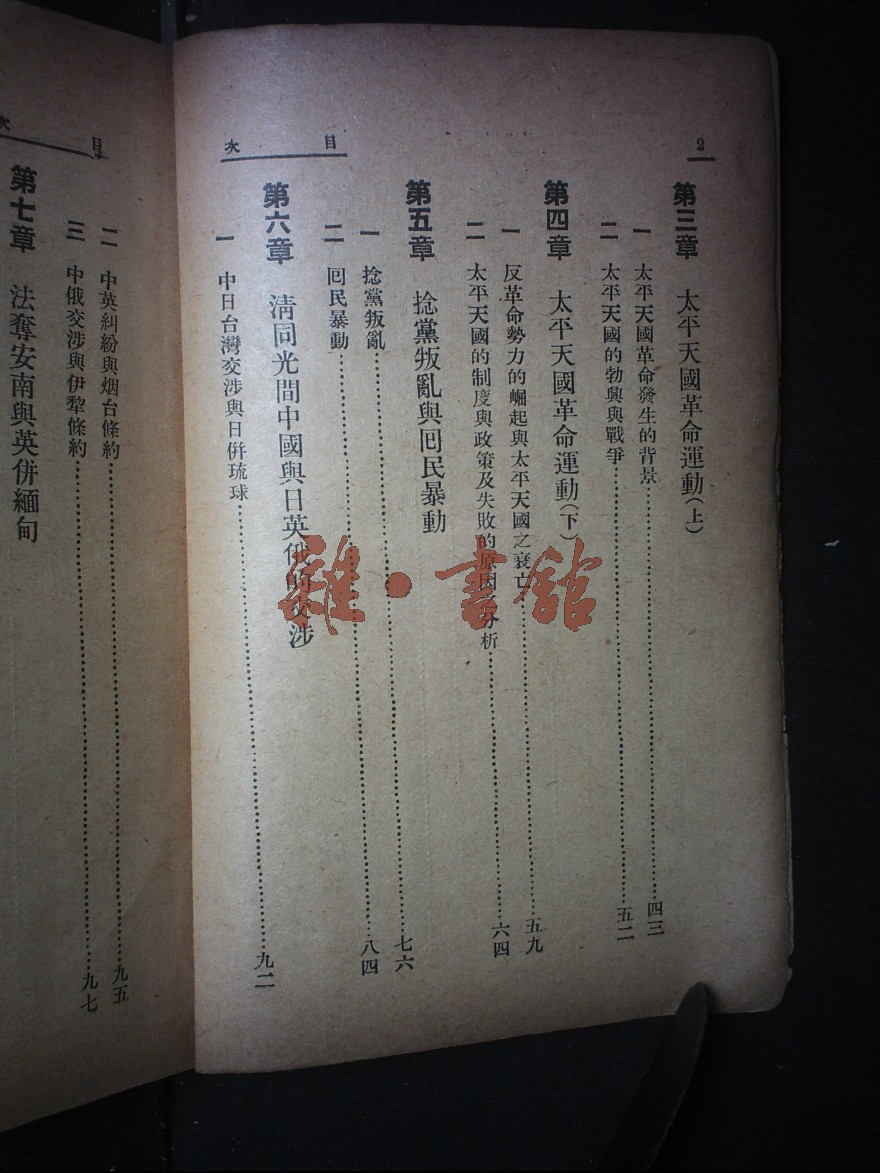 2
目次
第三章 太平天國革命運動(上)
一 太平天國革命發生的背景……四三
二 太平天國的勃興與戰爭……五二
第四章 太平天國革命運動(下)
一 反革命勢力的崛起與太平天國之衰亡……五九
二 太平天國的制度與政策及失敗的原因 分析……六四
第五章 捻黨叛亂與囘民暴動
一 捻黨叛亂……七六
二 囘民暴動……八四
第六章 清同光間中國與日英俄的交涉
一 中日台灣交涉與日併琉球……九二
目次
二 中英糾紛與烟台條約……九五
三 中俄交涉與伊犂條約……九七
第七章 法奪安南與英併緬甸
雜·書館